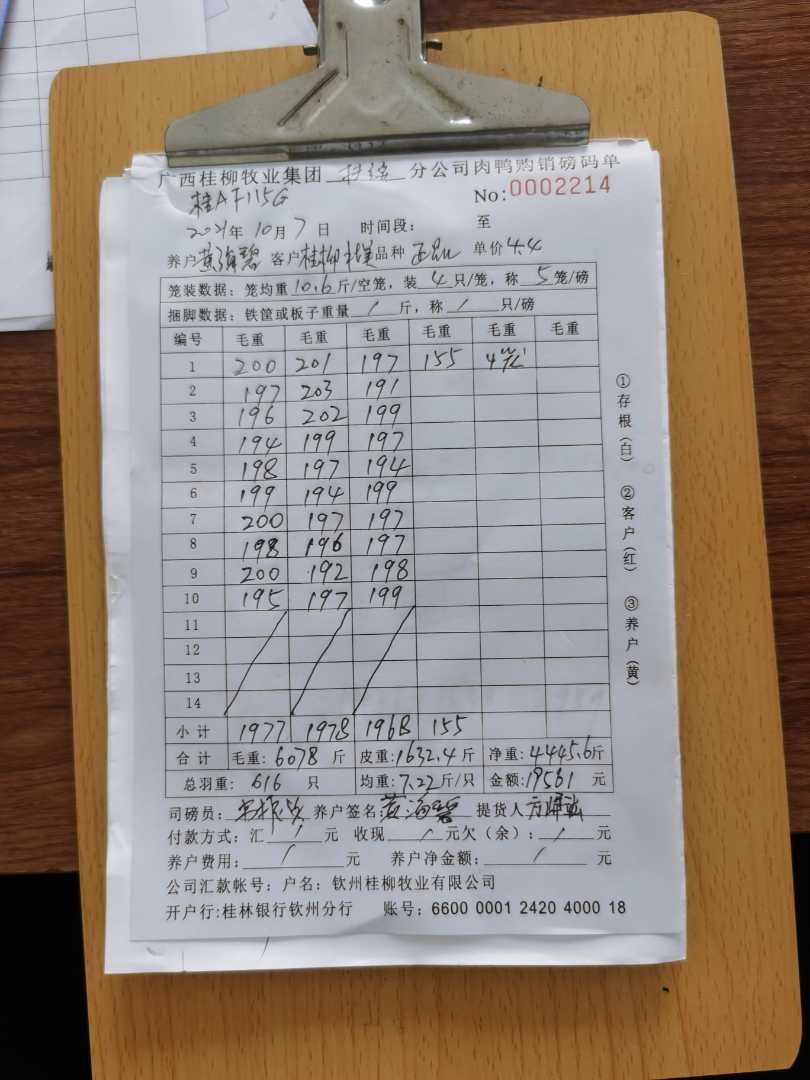 广西桂柳牧业集团 扶绥 分公司肉鸭购销磅码单
桂AF115G No:0002214
2021年10月7日 时间段: 至
养户黄海碧 客户桂柳 品种 正品 单价4.4
笼装数据: 笼均重10.6斤/空笼, 装4只/笼, 称5笼/磅
捆脚数据: 铁筐或板子重量/斤, 称/只/磅
编号 毛重 毛重 毛重 毛重 毛重 毛重
1 200 201 197 155 4
2 197 203 191
3 196 202 199
4 194 199 197
5 198 197 194
6 199 194 199
7 200 197 197
8 198 196 197
9 200 192 198
10 195 197 199
11
12
13
14
小计 1977 1978 1968 155
合计 毛重:6078斤 皮重:1632.4斤 净重:4445.6斤
总羽重: 616 只 均重:7.22斤/只 金额:19561元
司磅员: 养户签名:黄海碧 提货人
付款方式:汇/元 收现/元欠(余):/元
养户费用:/元 养户净金额:/元
公司汇款帐号: 户名: 钦州桂柳牧业有限公司
开户行:桂林银行钦州分行 账号: 6600 0001 2420 4000 18
①存根(白) ②客户(红) ③养户(黄)